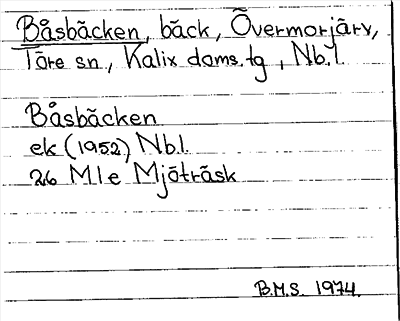 Båsbäcken, bäck, Övermorjärv,
Töre sn., Kalix doms.tg, Nb.l.
Båsbäcken
ek (1952) Nb.l.
26 M1e Mjöträsk
B.M.S. 1974.